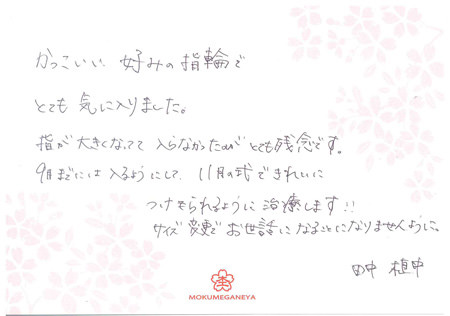 かっこいい 好みの指輪で
とても 気に入りました。
指が 大きくなってて 入らなかったのが とても残念です。
9月までには 入るようにして、11月の式できれいに
つけられるように 治療します!!
サイズ変更で お世話に なることに なりませんように。
田中 植中
MOKUMEGANEYA